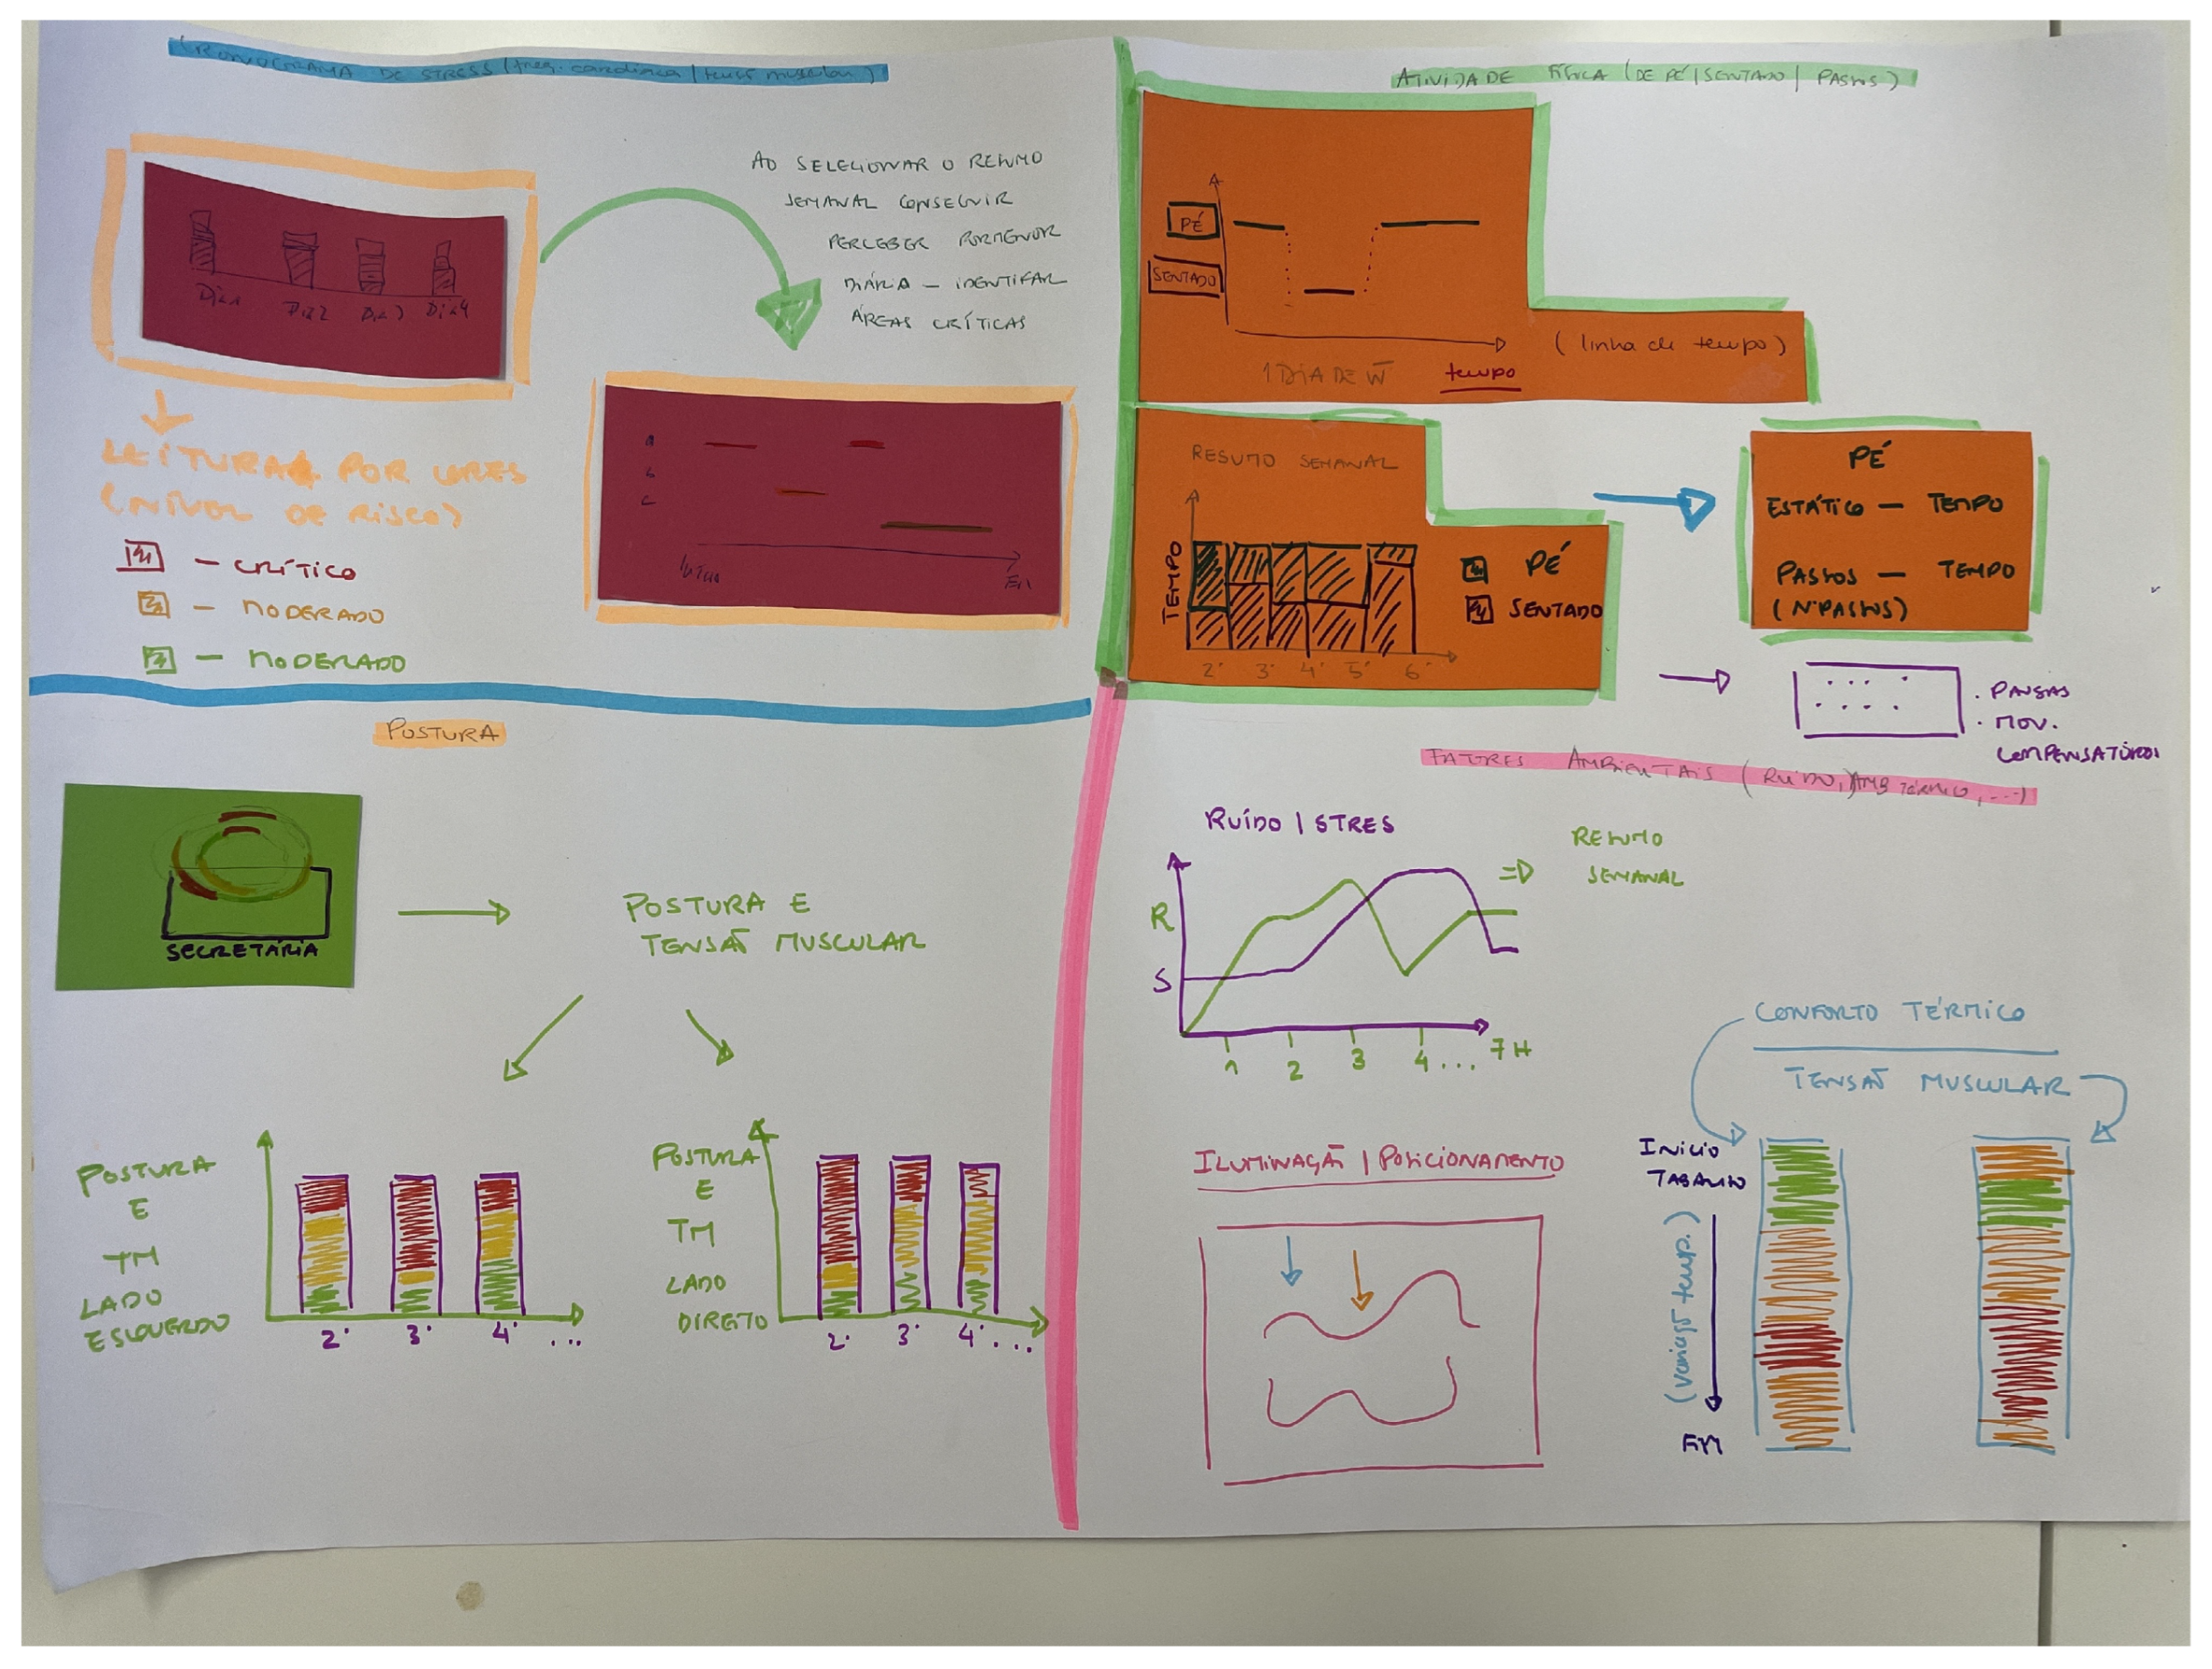 CRONOGRAMA DE STRESS (freq. cardíaca | tensão muscular)
AO SELECIONAR O RESUMO
SEMANAL CONSEGUIR
PERCEBER PORMENOR
DIÁRIA — IDENTIFAR
ÁREAS CRÍTICAS
Dia 1 Dia 2 Dia 3 Dia 4
LEITURA POR CORES
(NÍVEL DE RISCO)
— CRÍTICO
— MODERADO
— MODERADO
a
b
c
Início
Fim
ATIVIDADE FÍSICA (DE PÉ | SENTADO | PASSOS)
PÉ
SENTADO
(linha de tempo)
1 DIA DE W
tempo
RESUMO SEMANAL
TEMPO
2ª 3ª 4ª 5ª 6ª
PÉ
SENTADO
PÉ
ESTÁTICO — TEMPO
PASSOS — TEMPO
(Nº PASSOS)
. PAUSAS
. MOV.
COMPENSATÓRIOS
POSTURA
SECRETÁRIA
POSTURA E
TENSÃO MUSCULAR
POSTURA
E
TM
LADO
ESQUERDO
2ª 3ª 4ª ...
POSTURA
E
TM
LADO
DIREITO
2ª 3ª 4ª ...
FATORES AMBIENTAIS (RUÍDO, AMB TÉRMICO, ...)
RUÍDO | STRES
R
S
1 2 3 4 ... 7H
=> RESUMO
SEMANAL
ILUMINAÇÃO | POSICIONAMENTO
CONFORTO TÉRMICO
TENSÃO MUSCULAR
INICIO
TABALHO
(variação temp.)
FIM